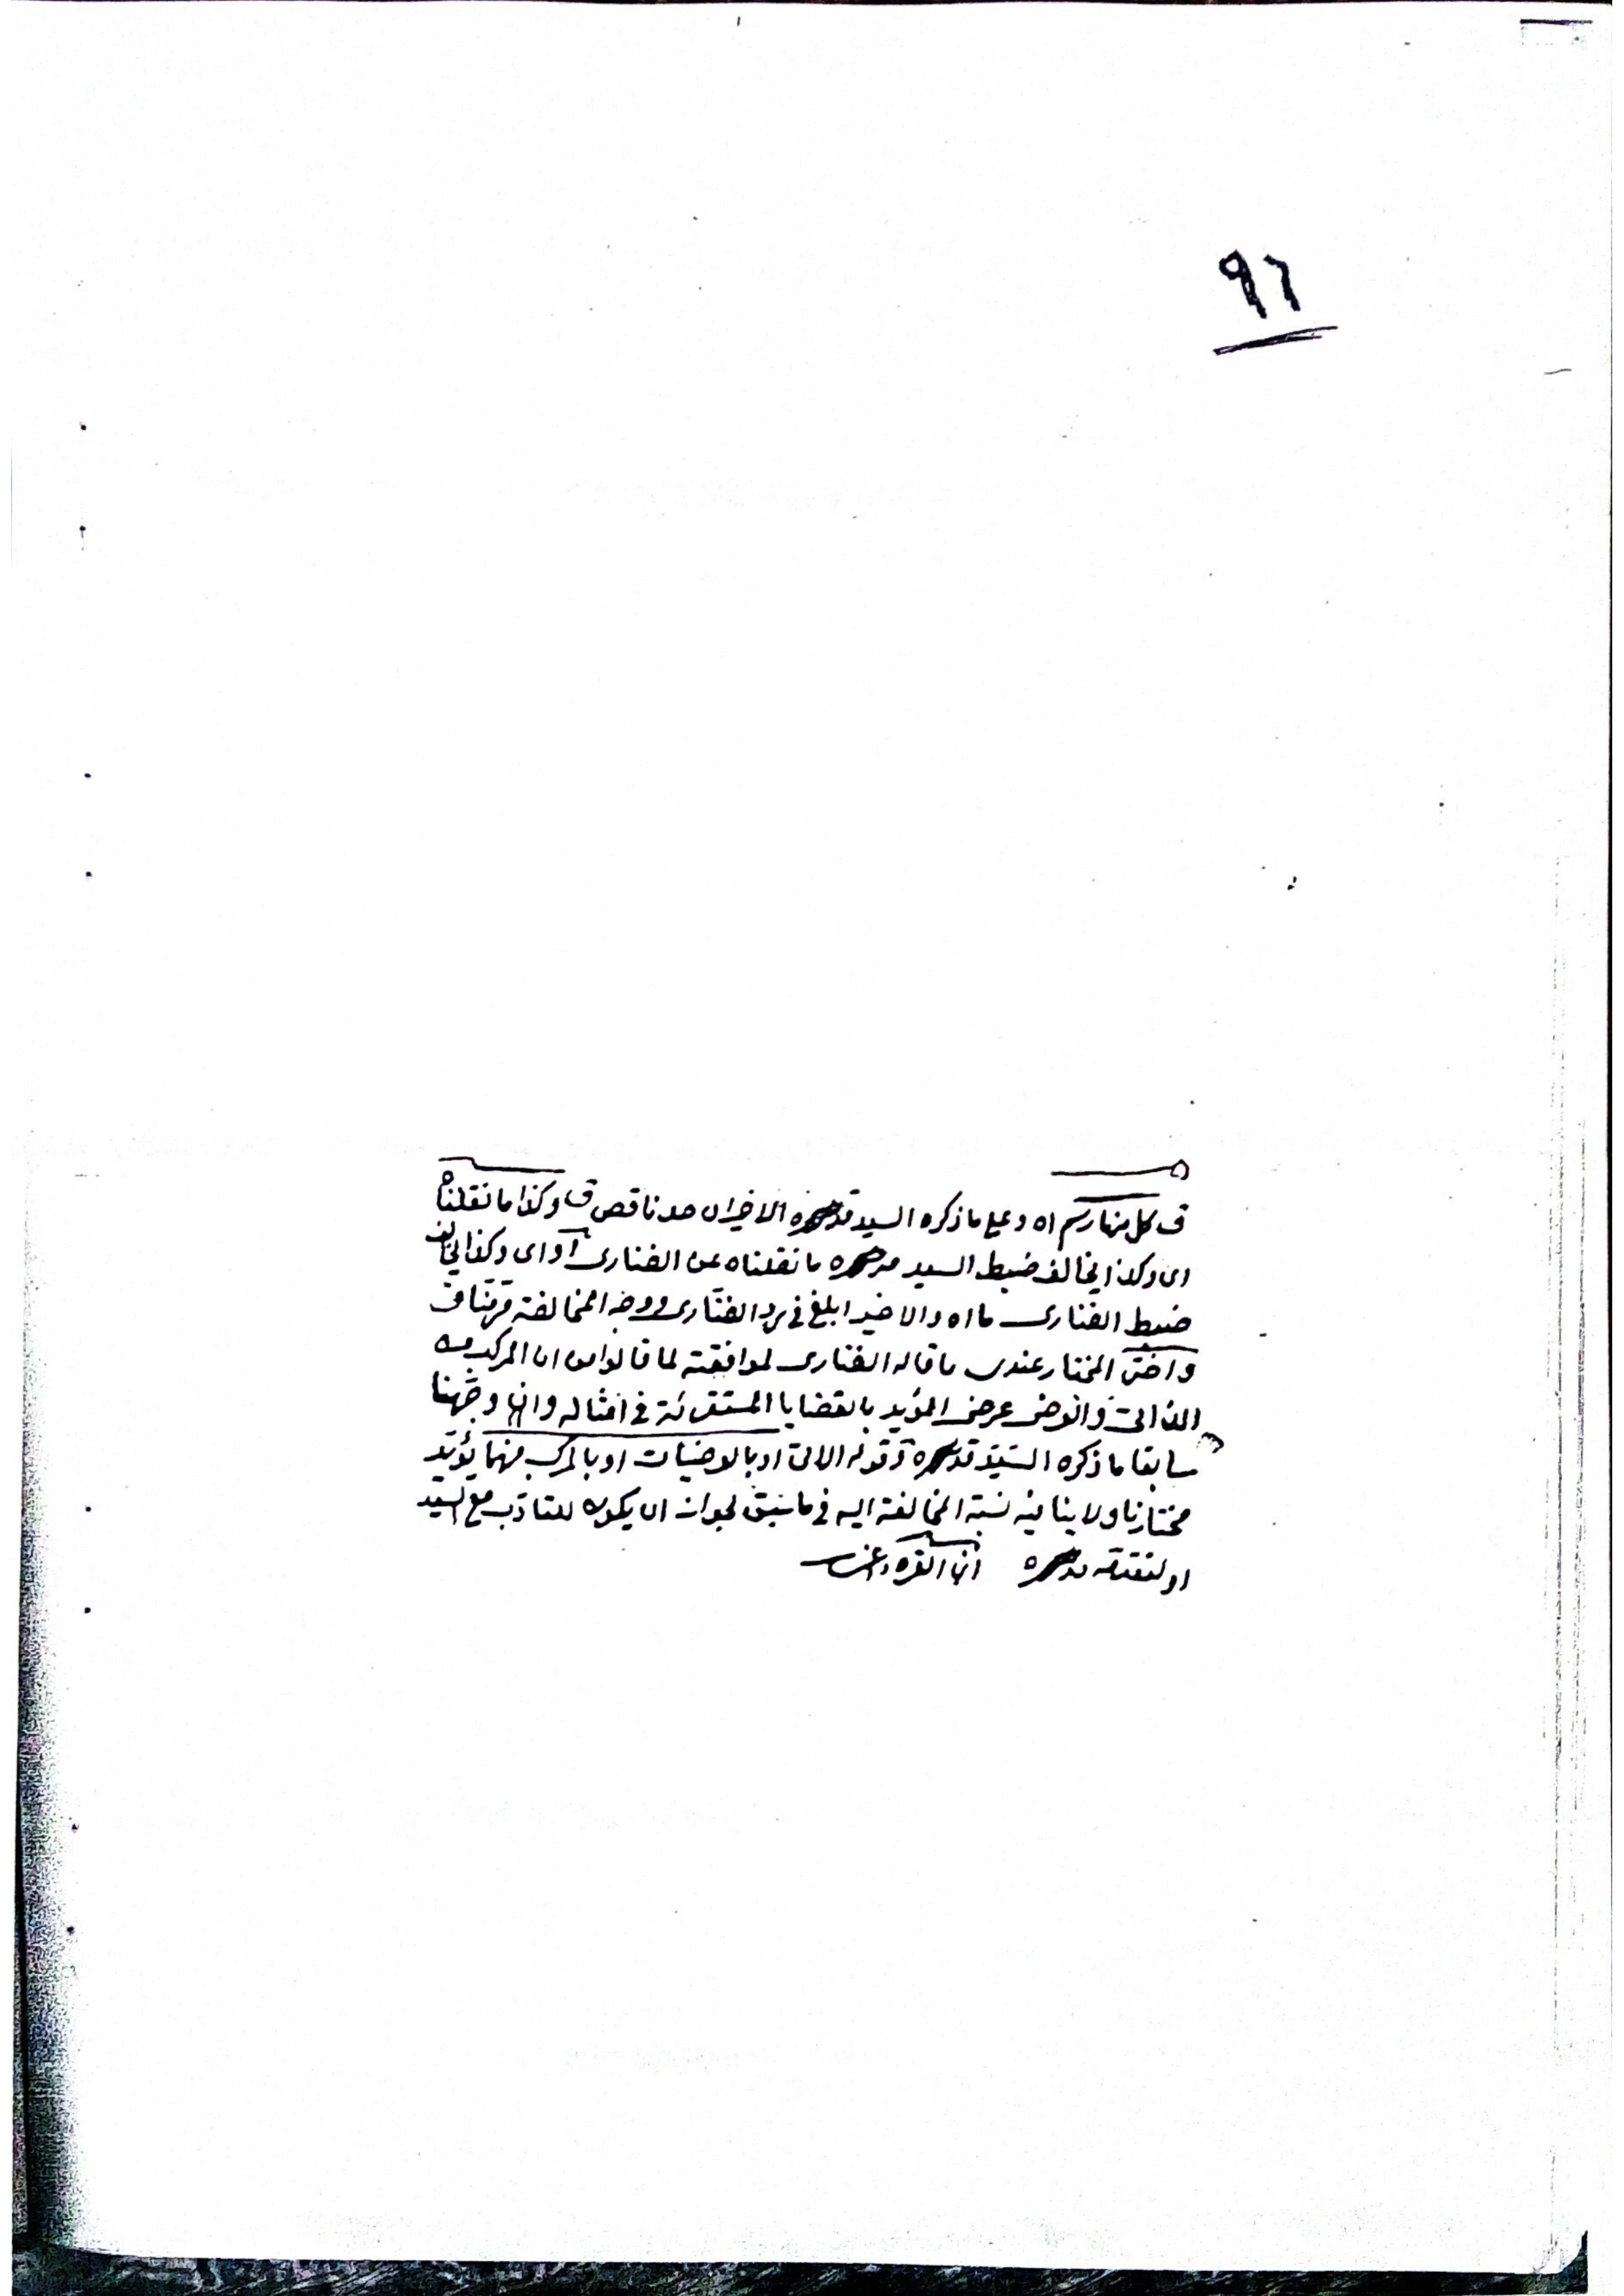 ٩٦
ق كل منها رسم اه وعلى ما ذكره السيد قدس سره الاخيران حد ناقص ق وكذا ما نقلناه
اى وكذا يخالف ضبط السيد قدس سره ما نقلناه عن الفنارى آ او اى وكذا يخالف
ضبط الفنارى ما اه والاخير ابلغ فى رد الفنارى ووجه المخالفة
المختار عندى ما قاله الفنارى لموافقته لما قالوا من ان المركب من
الذاتى والعرضى عرضى المؤيد بالقضايا المستقرئة فى امثاله وان وجهنا
سابقا ما ذكره السيد قدس سره قوله الاتى او بالعرضيات او بالمركب منهما يؤيد
مختارنا ولا ينافيه نسبة المخالفة اليه فى ما سبق لجواز ان يكون للتأدب مع السيد
او قدس سره ابن القره داغى